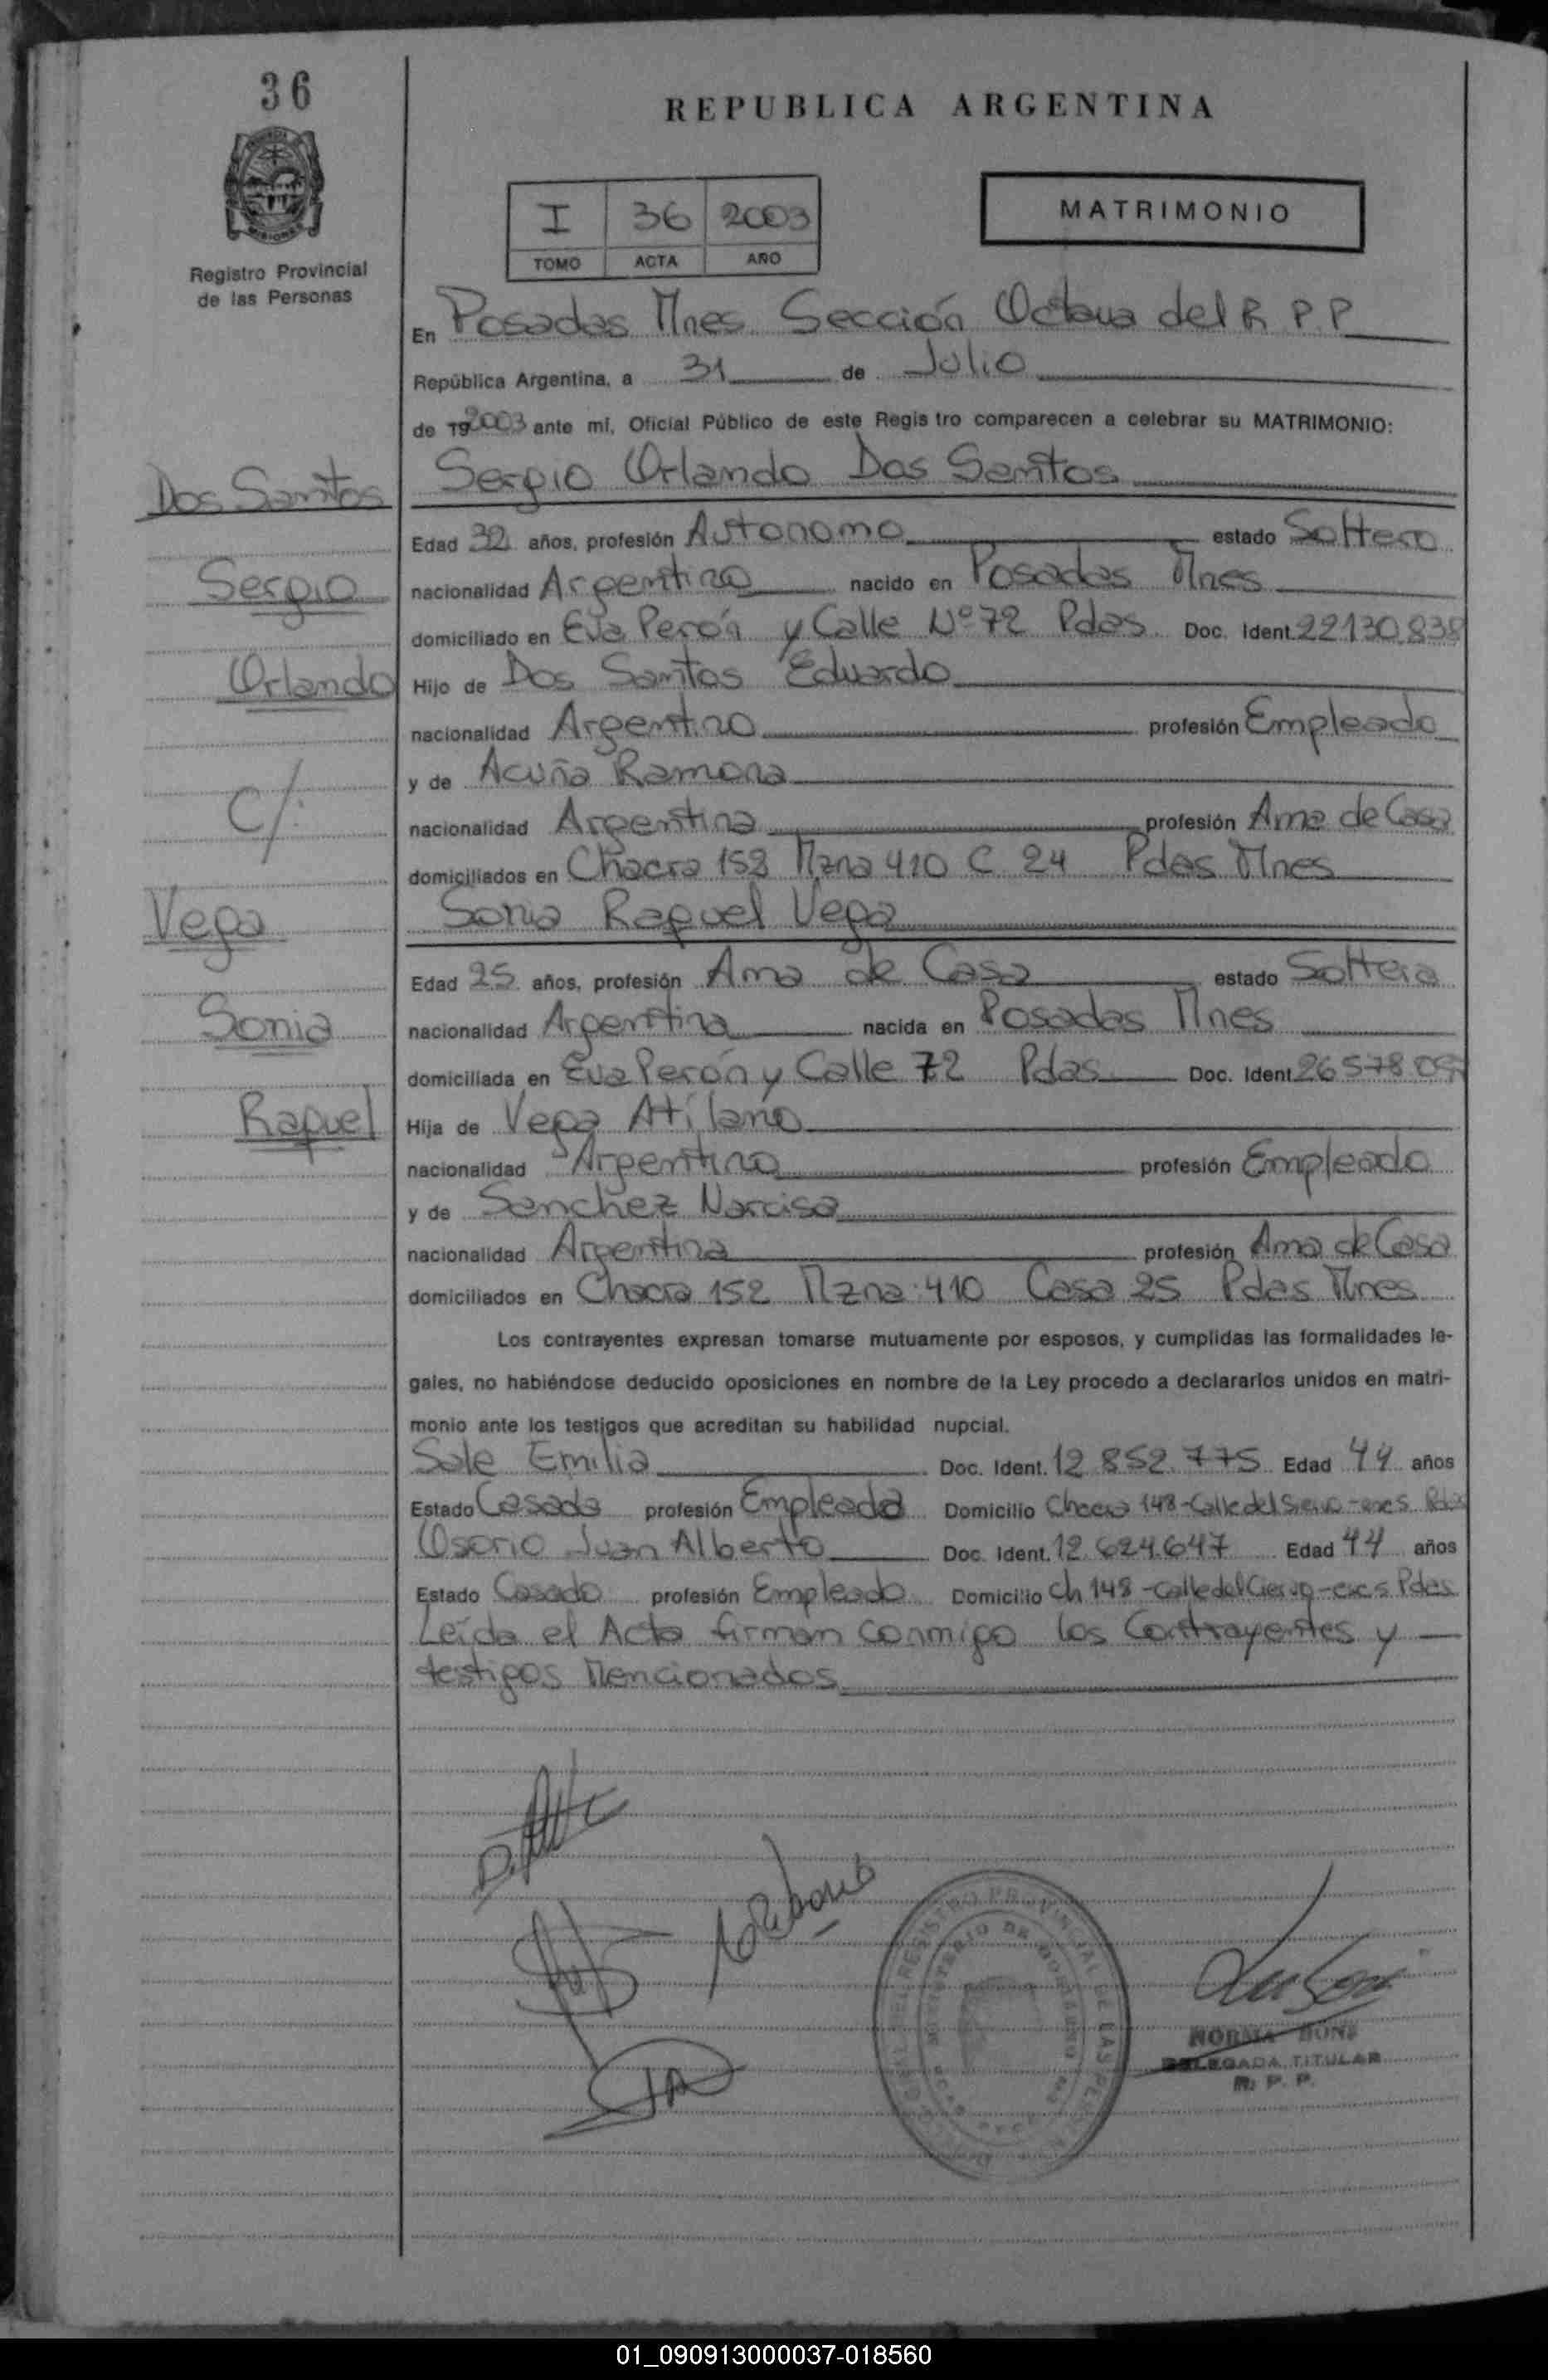 36
REPUBLICA ARGENTINA
I 36 2003
TOMO ACTA AÑO
MATRIMONIO
Registro Provincial
de las Personas
En Posadas Mnes Sección Octava del R P P
República Argentina, a 31 de Julio
de 192003 ante mí, Oficial Público de este Regis tro comparecen a celebrar su MATRIMONIO:
Dos Santos
Sergio
Orlando
c/:
Vega
Sonia
Raquel
Sergio Orlando Dos Santos
Edad 32 años, profesión Autonomo estado Soltero
nacionalidad Argentino nacido en Posadas Mnes
domiciliado en Eva Perón y Calle Nº 72 Pdas. Doc. Ident. 22130.838
Hijo de Dos Santos Eduardo
nacionalidad Argentino profesión Empleado
y de Acuña Ramona
nacionalidad Argentina profesión Ama de Casa
domiciliados en Chacra 152 Mzna 410 C 24 Pdas Mnes
Sonia Raquel Vega
Edad 25 años, profesión Ama de Casa estado Soltera
nacionalidad Argentina nacida en Posadas Mnes
domiciliada en Eva Perón y Calle 72 Pdas Doc. Ident. 26578
Hija de Vega Atilano
nacionalidad Argentino profesión Empleado
y de Sanchez Narcisa
nacionalidad Argentina profesión Ama de Casa
domiciliados en Chacra 152 Mzna 410 Casa 25 Pdas Mnes
Los contrayentes expresan tomarse mutuamente por esposos, y cumplidas las formalidades le-
gales, no habiéndose deducido oposiciones en nombre de la Ley procedo a declararlos unidos en matri-
monio ante los testigos que acreditan su habilidad nupcial.
Sole Emilia Doc. Ident. 12.852.775 Edad 44 años
Estado Casada profesión Empleada Domicilio Chacra 148-Calle del
Osorio Juan Alberto Doc. Ident. 12.624.647 Edad 44 años
Estado Casado profesión Empleado Domicilio Ch 148-Calle del Ciervo-esc 5 Pdas
Leída el Acta firman conmigo los Contrayentes y
testigos Mencionados
REGISTRO PROVINCIAL DE LAS
MINISTERIO DE
NORMA
DELEGADA TITULAR
R. P. P.
01_090913000037-018560